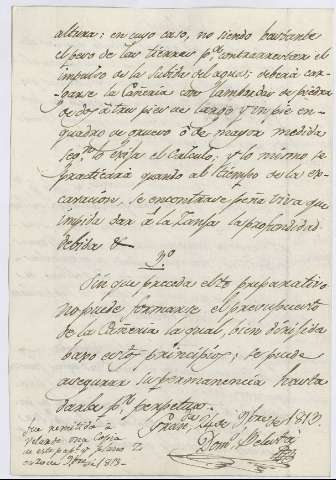 altura: en cuyo caso, no siendo bastante
el peso de las tierras pª contrarrestar el
impulso de la subida del agua; deberá car-
garse la Cañeria con lambordas de piedra
de dos á tres pies de largo y un pie en
quadro de grueso ó de mayor medida
segⁿ lo exija el calculo; y lo mismo se
practicará quando al tiempo de la ex-
cavacion, se encontrase peña viva que
impida dar á la Zanja la profundidad
debida &
Sin que preceda este preparativo
no puede formarse el presupuesto
de la Cañeria la qual, bien dirigida
bajo estos principios; se puede
asegurar su permanencia hasta
darla pʳ perpetua.
Granᵈᵃ de 9bre de 1813.
fue remitida á
una Copia
de este papˡ y plano
9bre de 1813-
Domᵒ